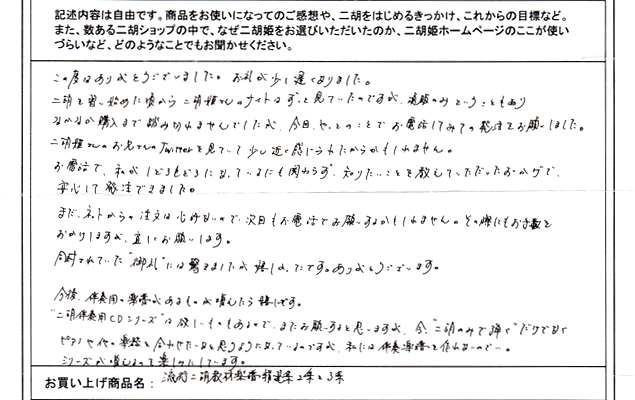 記述内容は自由です。商品をお使いになってのご感想や、二胡をはじめるきっかけ、これからの目標など。
また、数ある二胡ショップの中で、なぜ二胡姫をお選びいただいたのか、二胡姫ホームページのここが使い
づらいなど、どのようなことでもお聞かせください。
この度はありがとうございました。お礼が少し遅くなりました。
二胡を習い始めた頃から二胡姫さんのサイトはずっと見ていたのですが、通販のみということもあり
なかなか購入まで踏み切れませんでしたが、今日、やっとのことでお電話してみての発注をお願いしました。
二胡姫さんのお兄さんのTwitterを見ていて少し近く感じられたからかもしれません。
お電話で、私がしどろもどろになっているにも関わらず、知りたいことを教えていただいたおかげで、
安心して発注できました。
まだ、ネットからの注文は心許ないので、次回もお電話でお願いするかもしれません。その際にもお手数を
おかけしますが、宜しくお願いします。
同封されていた"御礼"には驚きましたが嬉しかったです。ありがとうございます。
今後、伴奏用の楽譜があるものが増えたら嬉しいです。
"二胡伴奏用CDシリーズ"は欲しいものもあるので、またお願いすると思いますが、今、"二胡のみで弾く"だけでなく
ピアノや他の楽器と合わせたいなと思うようになっているのですが、私には伴奏楽譜を作れないので…。
シリーズが増えるのを楽しみにしています。
お買い上げ商品名： 二胡教材楽譜 2集と3集